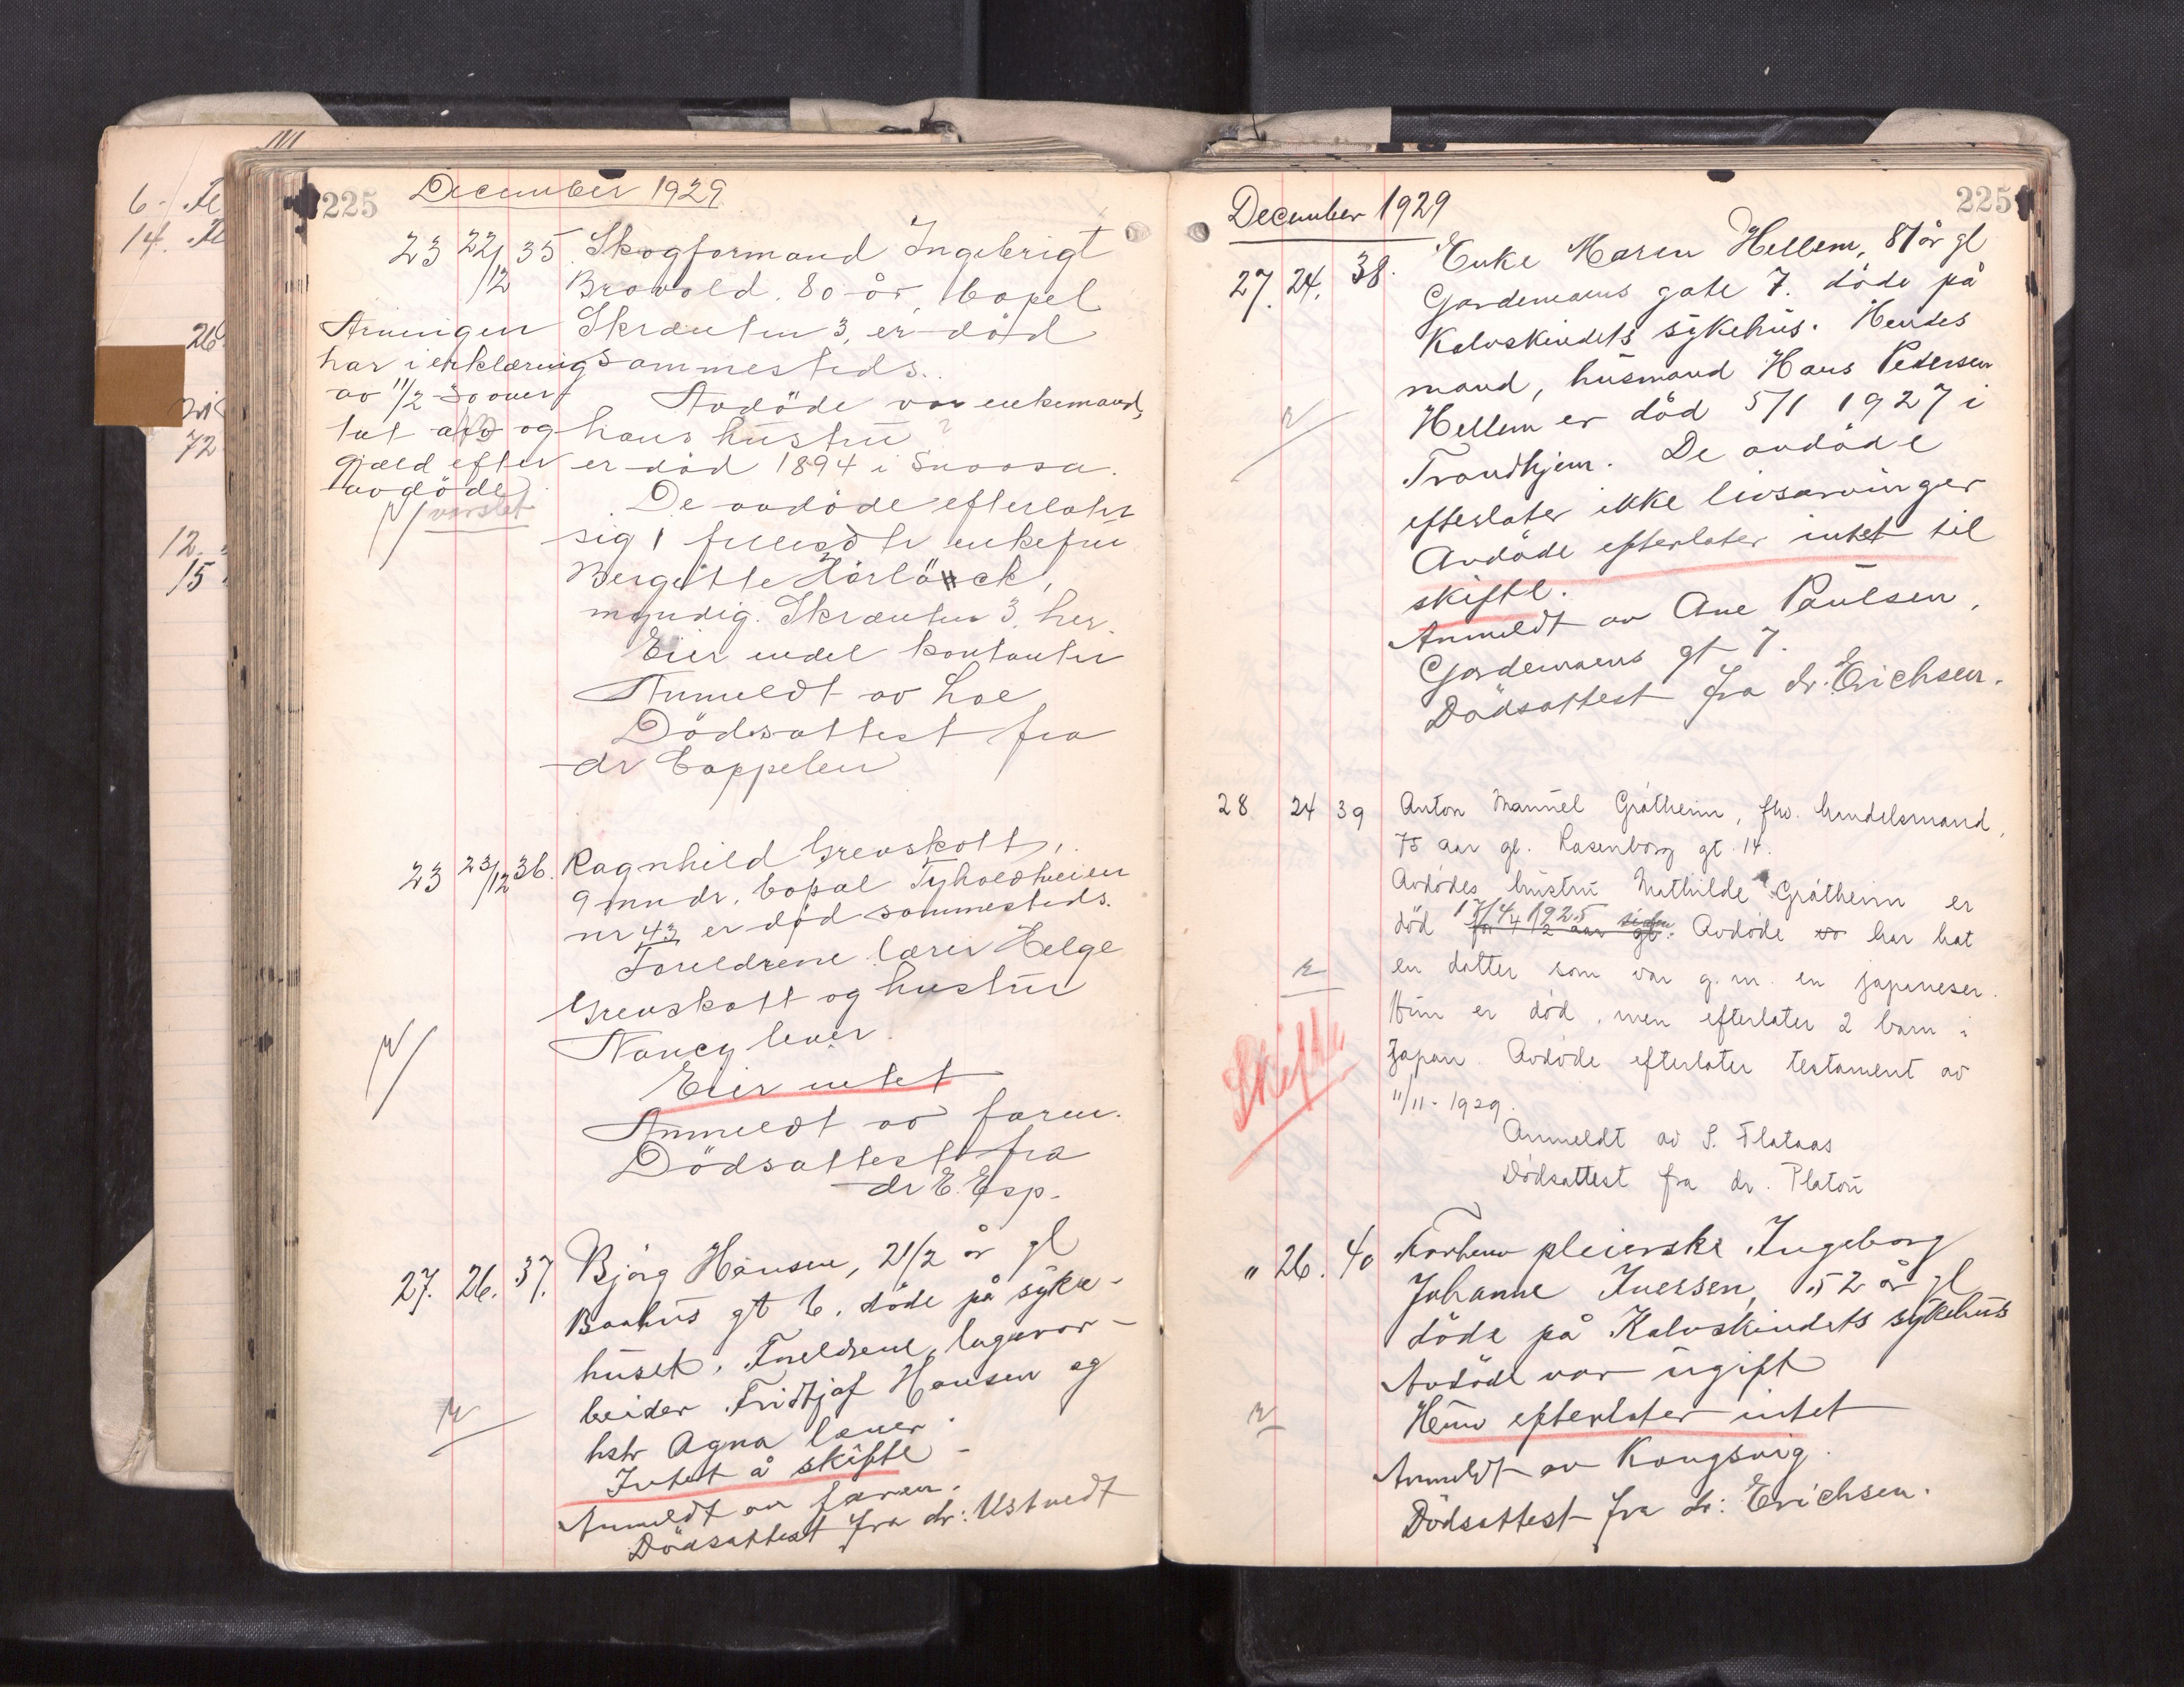 6
14.
26
72
12.
15
225
December 1929
23 22/12 35. Skogformand Ingebrigt
Bravold. 80 år, bopel
Skrænten 3, er død
sammesteds.
Arvingen
har i erklæring
av 11/2 30 over-
tat arv og
gjæld efter
avdøde
varslet
Avdøde var enkemand,
hans hustru ?
er død 1894 i Snaasa.
De avdøde efterlater
sig 1 fælles dtr enkefru
Bergitte
myndig. Skrænten 3. her.
Eier endel kontanter
Anmeldt av Hoe
Dödsattest fra
dr Cappelen
23 23/12 36. Ragnhild Grevskott,
9 mndr. bopæl Tyholdtveien
nr 43 er død sammesteds.
Foreldrene lærer Helge
Grevskott og hustru
Nancy lever.
Eier intet
Anmeldt av faren.
Dödsattest fra
dr E. Esp.
27. 26. 37. Bjørg Hansen, 2 1/2 år gl
Baahus gt 6. döde på syke-
huset. Foreldrene, lagerar-
beider Fridtjof Hansen og
hstr Agna lever.
Intet å skifte -
Anmeldt av faren.
Dödsattest fra dr: Ustvedt
225
December 1929
27. 24. 38. Enke Maren Hellem, 81 år gl
Gardemoens gate 7. döde på
Kalvskindets sykehus. Hendes
mand, husmand Hans Pedersen
Hellem er död 5/1 1927 i
Trondhjem. De avdöde
efterlater ikke livsarvinger
Avdöde efterlater intet til
skifte.
Anmeldt av Ane Paulsen,
Gardemoens gt 7.
Dödsattest fra dr. Erichsen.
28 24 39 Anton Manuel Gråtheim, fhv. handelsmand,
75 aar gl. Rosenborg gt. 14.
Avdødes hustru Mathilde Gråtheim er
død 17/4 1925 Avdøde har hat
en datter som var g.m. en japaneser.
Hun er død, men efterlater 2 barn i
Japan. Avdøde efterlater testament av
11/11 - 1929.
Skifte
Anmeldt av S. Flataas
Dødsattest fra dr. Platou
" 26. 40 Forhenv pleierske Ingeborg
Johanne Iversen, 52 år gl
döde på Kalvskindets sykehus
Avdöde var ugift
Hun efterlater intet
Anmeldt av Kongsvig.
Dödsattest fra dr: Erichsen.